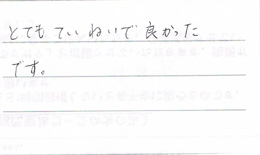 とてもていねいで良かった
です。